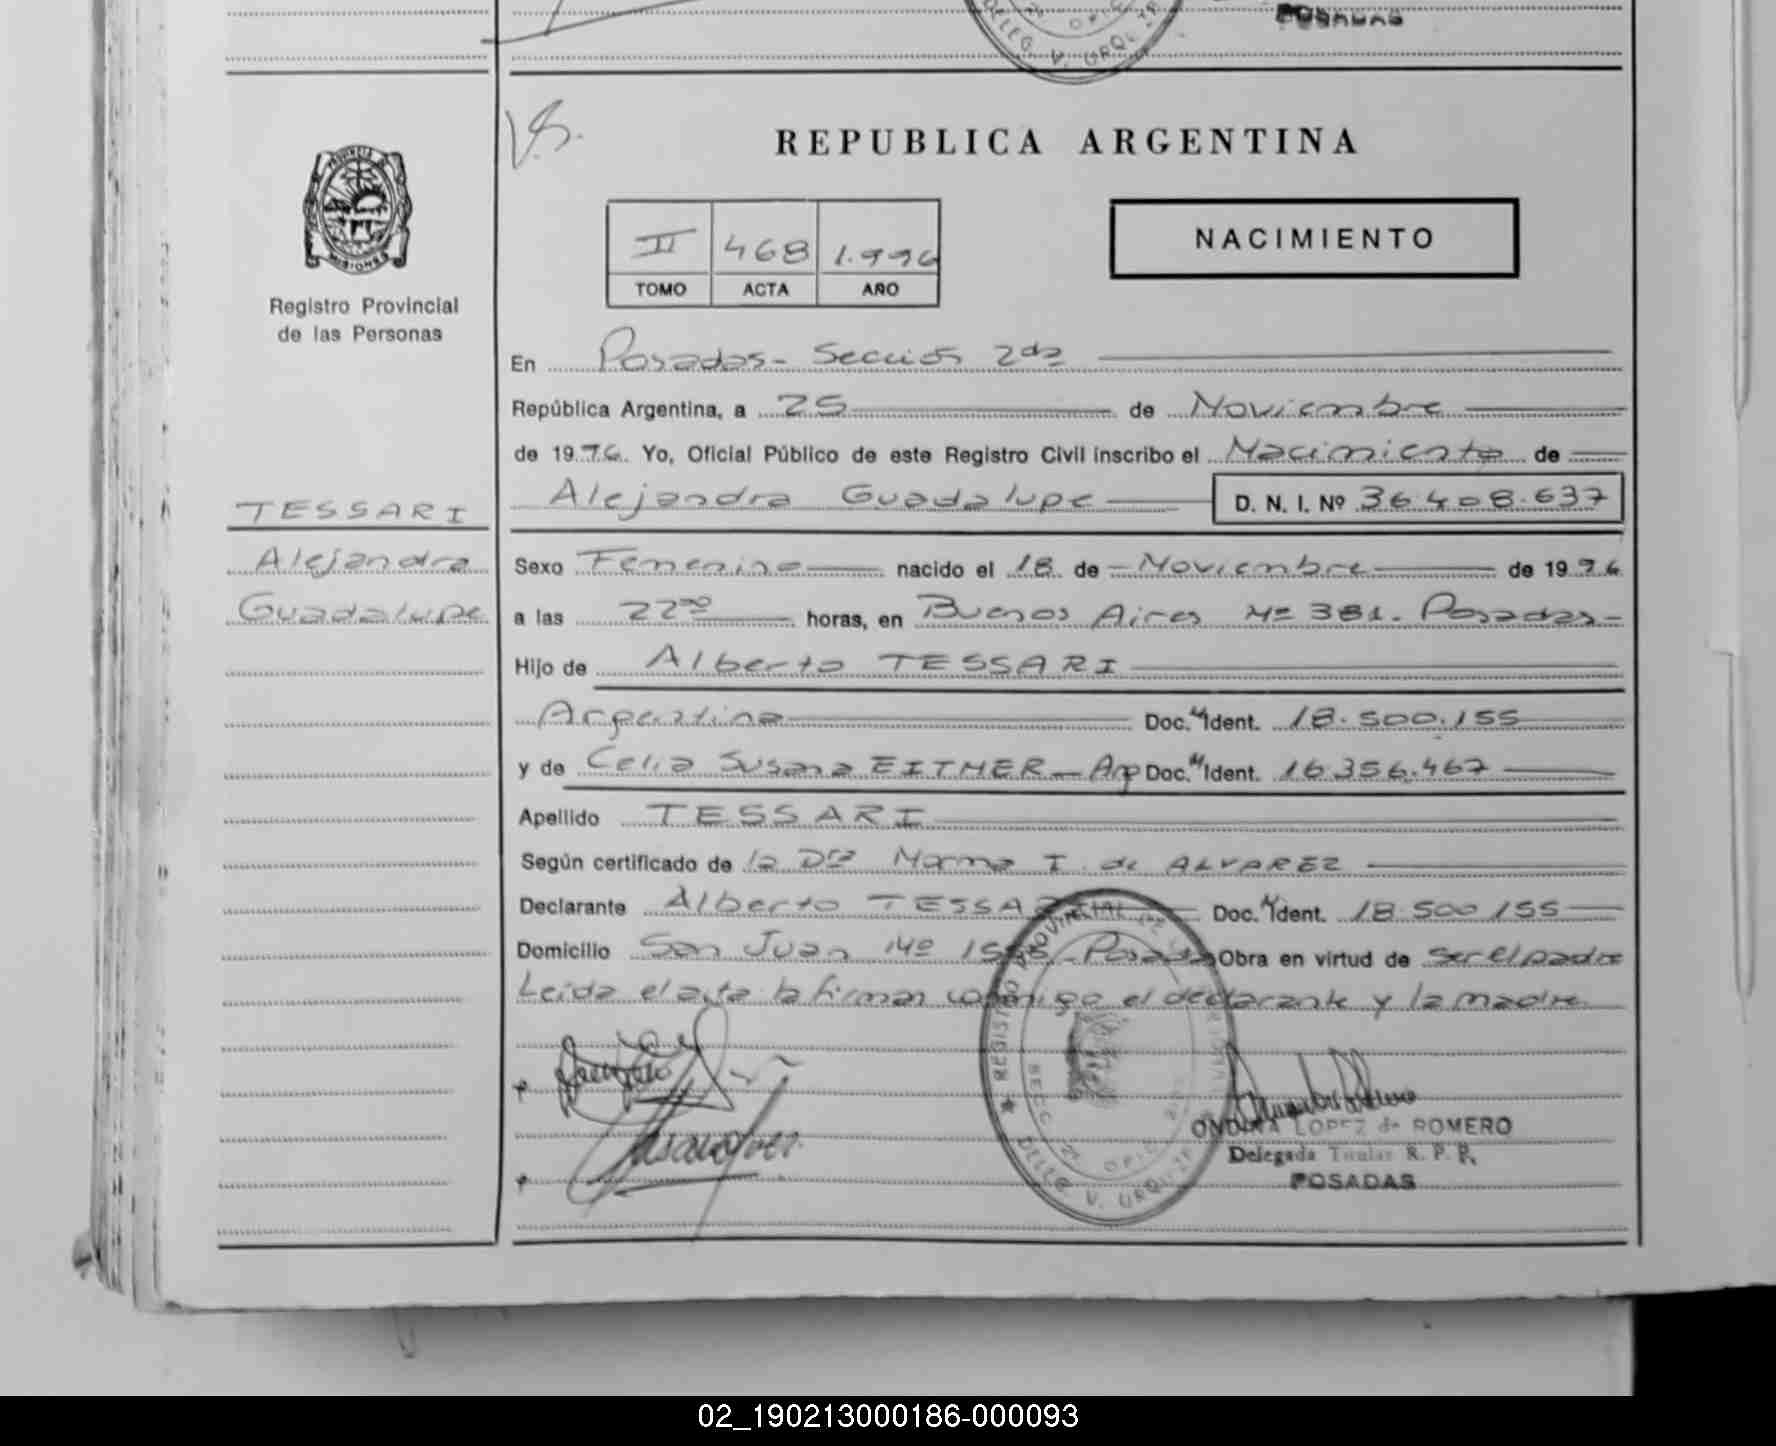 POSADAS
DELEG. V. URQUIZA
V.S.
REPUBLICA ARGENTINA
PROVINCIA DE
MISIONES
Registro Provincial
de las Personas
II 468 1.996
TOMO ACTA AÑO
NACIMIENTO
En Posadas - Sección 2da
República Argentina, a 25 de Noviembre
de 1996. Yo, Oficial Público de este Registro Civil inscribo el Nacimiento de
Alejandra Guadalupe D. N. I. Nº 36.408.637
TESSARI
Alejandra
Guadalupe
Sexo Femenino nacido el 18 de Noviembre de 1996
a las 22 00 horas, en Buenos Aires Nº 381. Posadas
Hijo de Alberto TESSARI
Argentina Doc. Ident. 18.500.155
y de Celia Susana EITNER - Arg Doc. Ident. 16.356.467
Apellido TESSARI
Según certificado de la Dra Norma I. de ALVAREZ
Declarante Alberto TESSARI Doc. Ident. 18.500.155
Domicilio San Juan Nº Posadas Obra en virtud de ser el padre
Leida el acta la firman conmigo el declarante y la madre
REGISTRO PROVINCIAL DE
SECC 2ª OFIC
DELEG. V. URQUIZA
LOPEZ de ROMERO
Delegada Titular R. P. P.
POSADAS
02_190213000186-000093